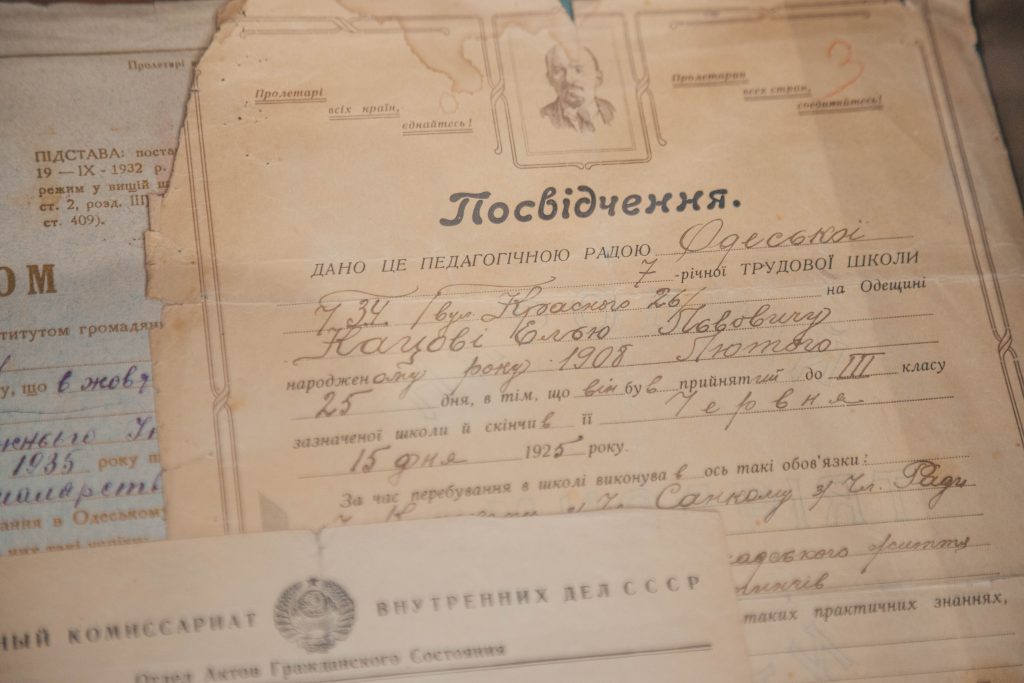 Пролетарі
ПІДСТАВА: поста
19 — IX - 1932 р.
режим у вищій ш
ст. 2, розд. III)
ст. 409).
ОМ
ститутом громадян
у, що в жовт
1935 року п
малярств
ання в Одеському
Пролетарі
всіх країн,
єднайтесь!
Пролетарии
всех стран,
соединяйтесь!
3
Посвідчення.
ДАНО ЦЕ ПЕДАГОГІЧНОЮ РАДОЮ Одеської
7 -річної ТРУДОВОЇ ШКОЛИ
ч 34 /вул. Красного 26/ на Одещині
Кацові Елью Львовичу
народженому року 1908 Лютого
25 дня, в тім, що він був прийнятий до III класу
зазначеної школи й скінчив її Червня
15 дня 1925 року.
За час перебування в школі виконував ось такі обов'язки:
Санкому 3/ Чл. Ради
життя
таких практичних знаннях,
НЫЙ КОМИССАРИАТ ВНУТРЕННИХ ДЕЛ СССР
Отдел Актов Гражданского Состояния